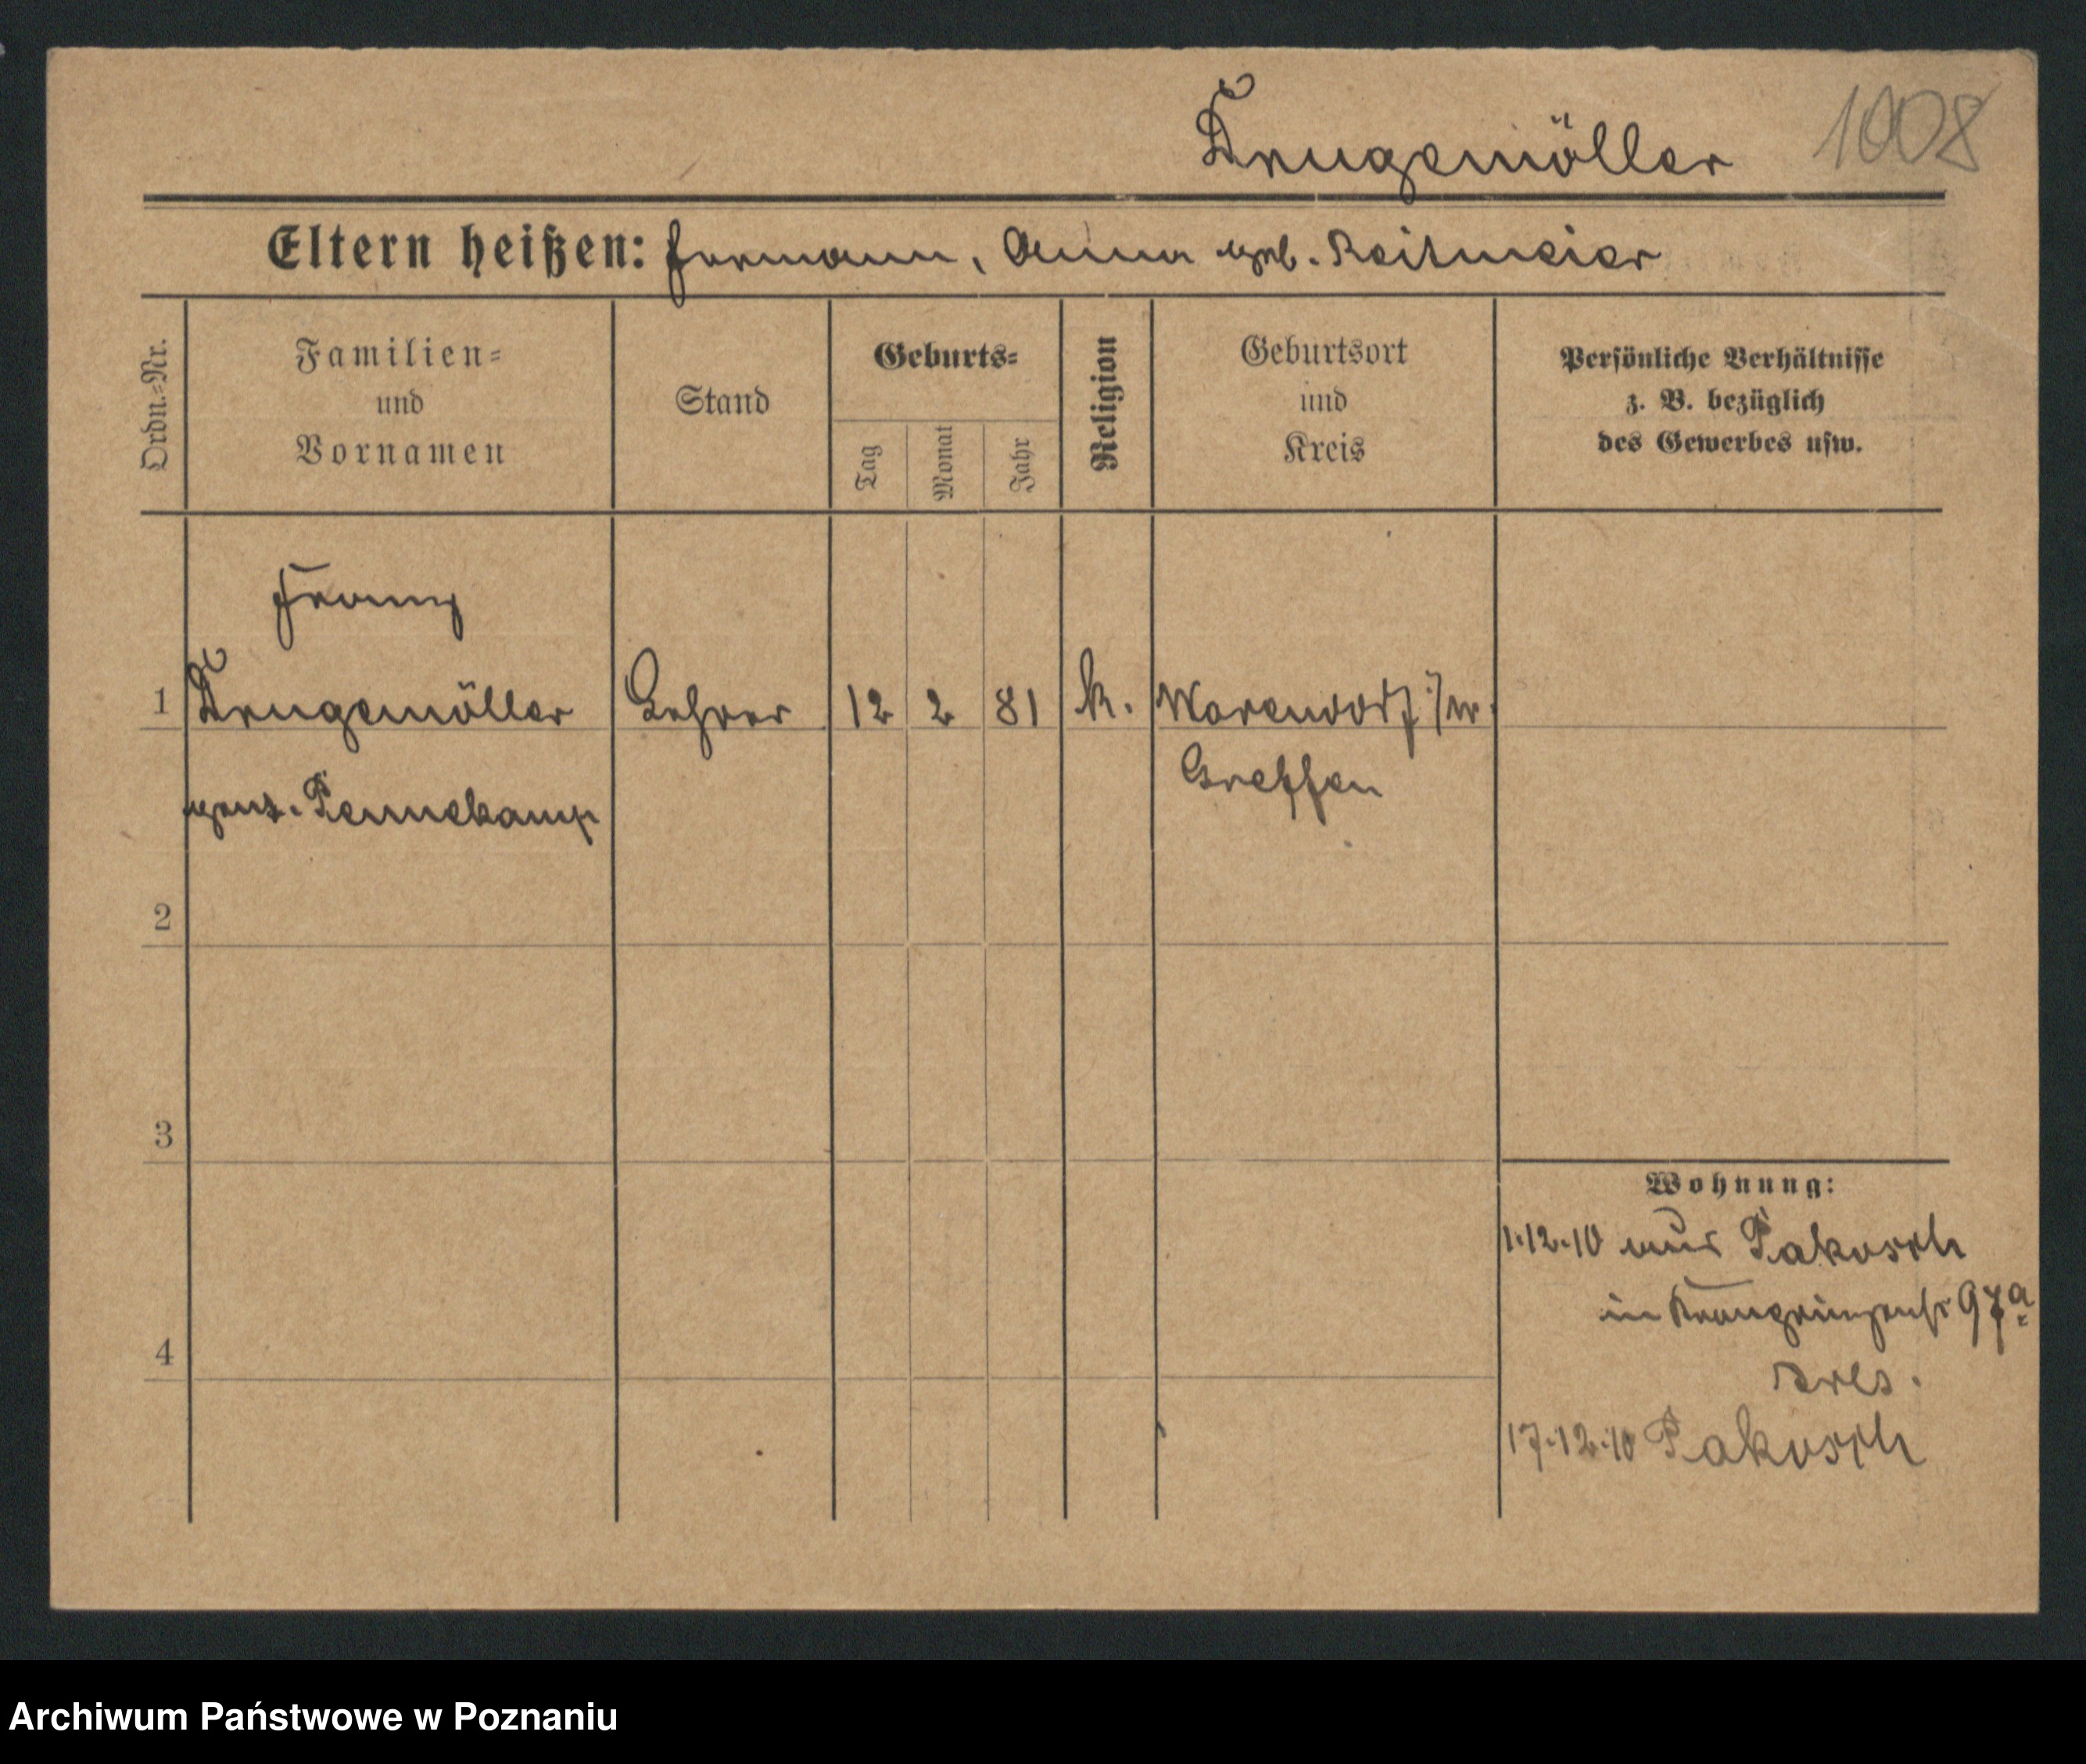 Drugemöller
1008
Eltern heißen: Hermann, Anna geb. Reitmeier
Ordn.-Nr.
Familien- und Vornamen
Stand
Geburts-
Tag
Monat
Jahr
Religion
Geburtsort und Kreis
Persönliche Verhältnisse z. B. bezüglich des Gewerbes usw.
Franz
1 Drugemöller Lehrer 12 2 81 k. Warendorf i/W.
Greffen
gent. Pennekamp
2
3
Wohnung:
1.12.10 aus Pakosch
in Kronprinzenstr 97a
4
17.12.10 Pakosch
Archiwum Państwowe w Poznaniu